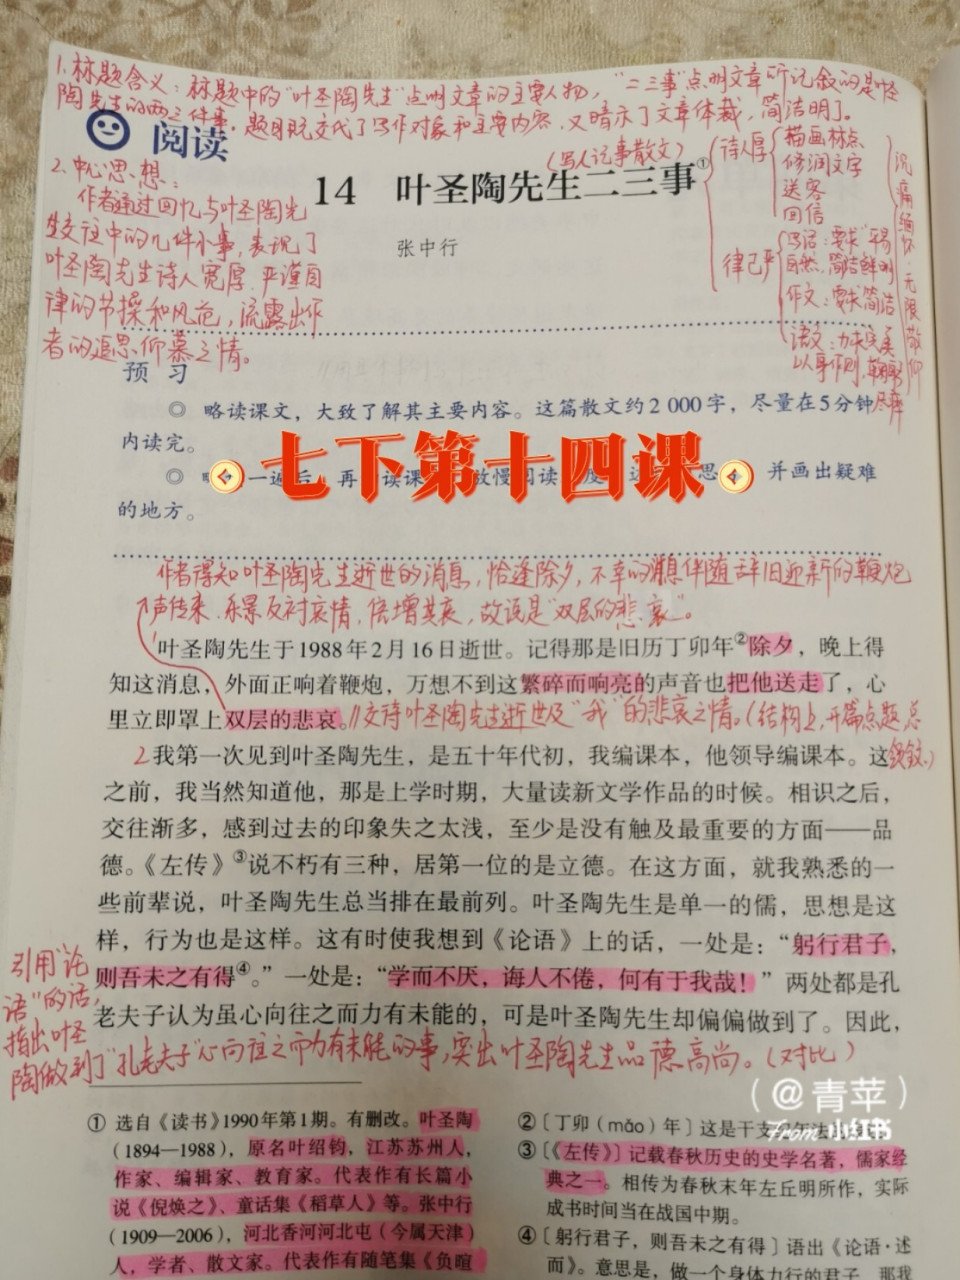 1.标题含义：标题中的“叶圣陶先生”点明文章的主要人物，“二三事”点明文章所记叙的是叶
陶先生的两三件事。题目既交代了写作对象和主要内容，又暗示了文章体裁，简洁明了。
阅读
(写人记事散文)
14 叶圣陶先生二三事①
张中行
待人厚
描画标点
修润文字
送客
回信
律己严
写话：要求“平易
自然，简洁鲜明
作文：要求简洁
语文：力求完美
以身作则，鞠躬
尽瘁
沉痛缅怀·无限敬仰
2.中心思想：
作者通过回忆与叶圣陶先
生交往中的几件小事，表现了
叶圣陶先生待人宽厚、严谨自
律的节操和风范，流露出作
者的追思仰慕之情。
预 习
◎ 略读课文，大致了解其主要内容。这篇散文约2 000字，尽量在5分钟
内读完。
七下第十四课
◎ 一遍后，再 读课 放慢阅读 度 思 并画出疑难
的地方。
作者得知叶圣陶先生逝世的消息，恰逢除夕，不幸的消息伴随辞旧迎新的鞭炮
声传来，乐景反衬哀情，倍增其哀，故说是“双层的悲哀”。
叶圣陶先生于1988年2月16日逝世。记得那是旧历丁卯年②除夕，晚上得
知这消息，外面正响着鞭炮，万想不到这繁碎而响亮的声音也把他送走了，心
里立即罩上双层的悲哀。//交待叶圣陶先生逝世及“我”的悲哀之情。(结构上，开篇点题，总
领全文。)
2我第一次见到叶圣陶先生，是五十年代初，我编课本，他领导编课本。这
之前，我当然知道他，那是上学时期，大量读新文学作品的时候。相识之后，
交往渐多，感到过去的印象失之太浅，至少是没有触及最重要的方面——品
德。《左传》③说不朽有三种，居第一位的是立德。在这方面，就我熟悉的一
些前辈说，叶圣陶先生总当排在最前列。叶圣陶先生是单一的儒，思想是这
样，行为也是这样。这有时使我想到《论语》上的话，一处是：“躬行君子，
则吾未之有得④。”一处是：“学而不厌，诲人不倦，何有于我哉！”两处都是孔
老夫子认为虽心向往之而力有未能的，可是叶圣陶先生却偏偏做到了。因此，
引用“论
语”的话，
指出叶圣
陶做到了“孔老夫子”心向往之而力有未能的事，突出叶圣陶先生品德高尚。(对比)
① 选自《读书》1990年第1期。有删改。叶圣陶
（1894—1988），原名叶绍钧，江苏苏州人，
作家、编辑家、教育家。代表作有长篇小
说《倪焕之》、童话集《稻草人》等。张中行
（1909—2006），河北香河河北屯（今属天津）
人，学者、散文家。代表作有随笔集《负暄
② 〔丁卯（mǎo）年〕这是干支纪年法
③ 〔《左传》〕记载春秋历史的史学名著，儒家经
典之一。相传为春秋末年左丘明所作，实际
成书时间当在战国中期。
④ 〔躬行君子，则吾未之有得〕语出《论语·述
而》。意思是，做一个身体力行的君子，那我
（@青苹）
From小红书